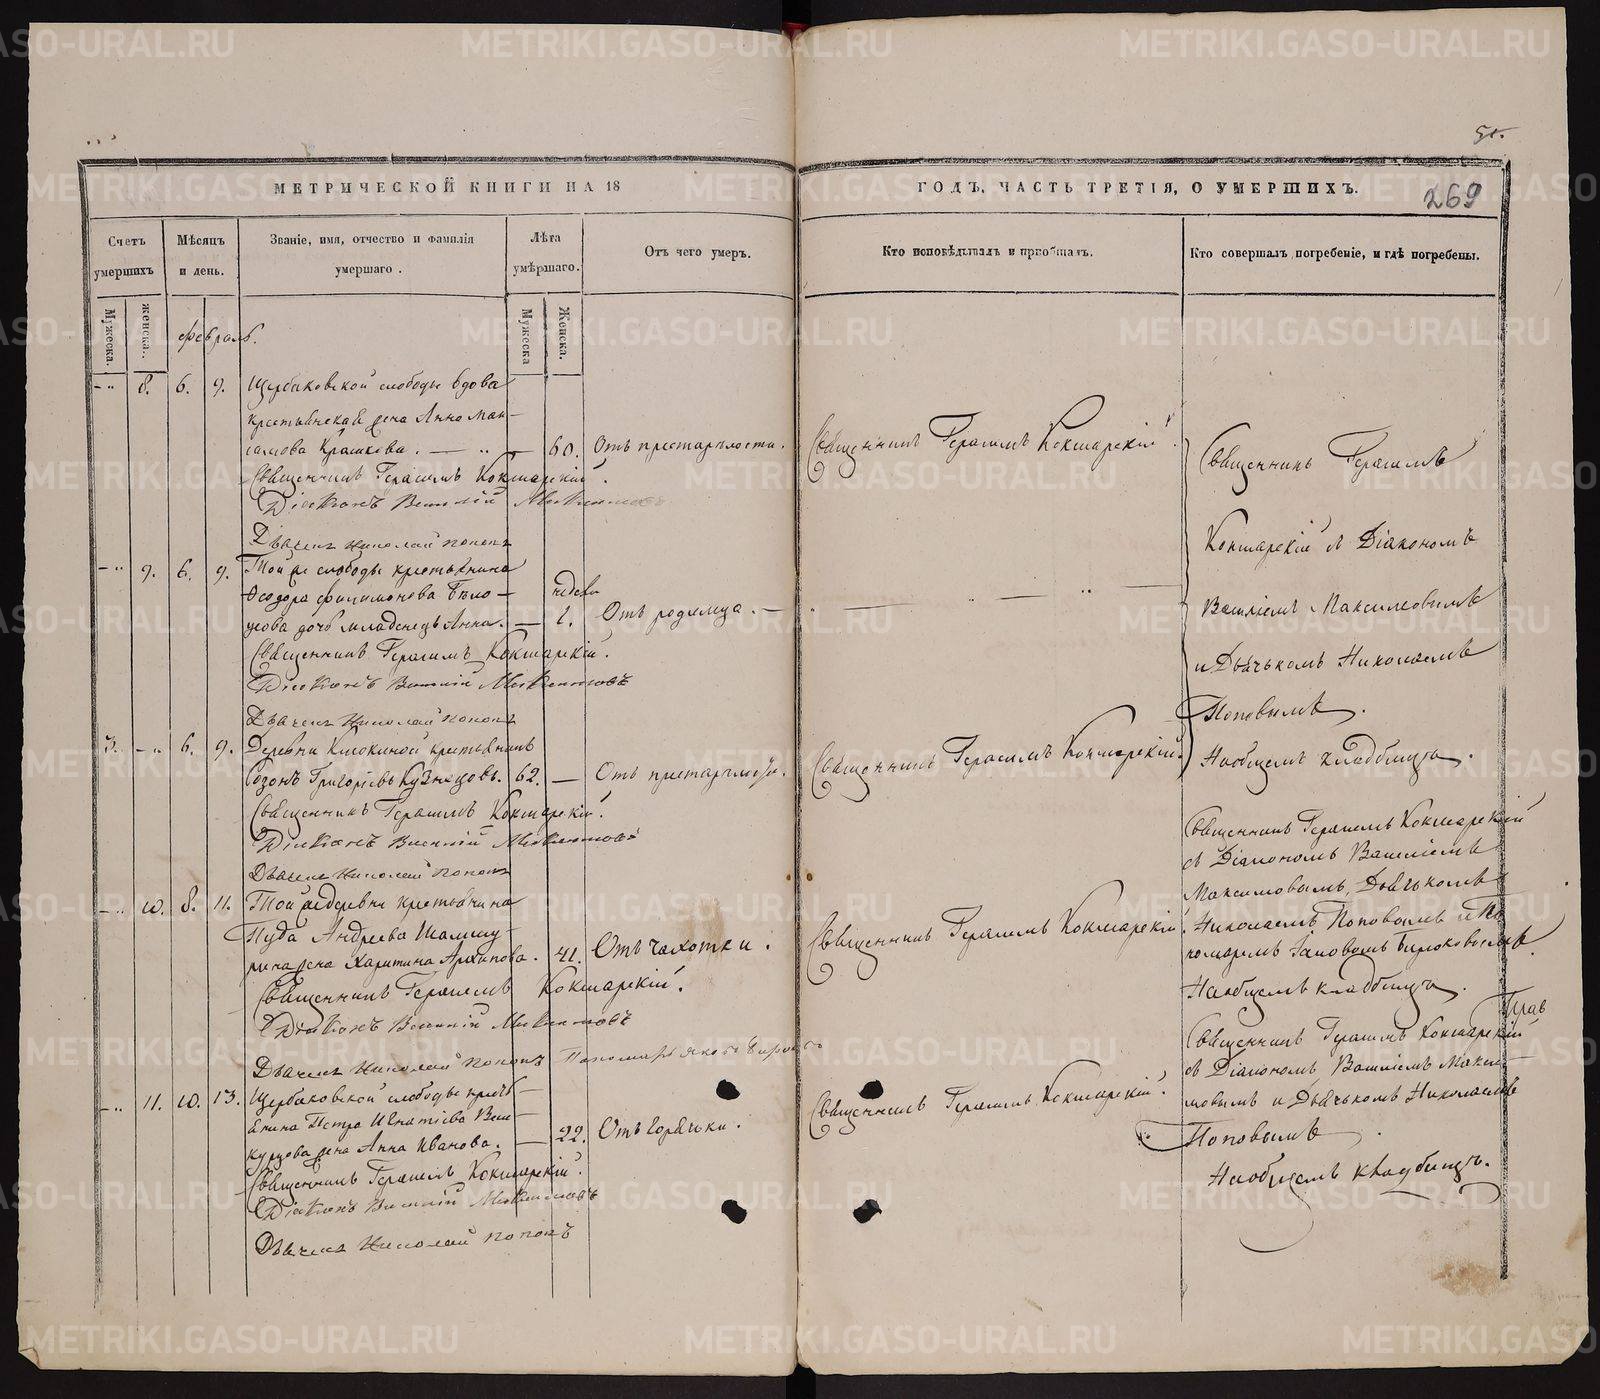 51.
МЕТРИЧЕСКОЙ КНИГИ НА 18
ГОДЪ, ЧАСТЬ ТРЕТІЯ, О УМЕРШИХЪ.
269
Счетъ умершихъ
Мѣсяцъ и день.
Званіе, имя, отчество и фамилія умершаго.
Лѣта умѣршаго.
Отъ чего умеръ.
Кто исповѣдывалъ и пріобщалъ.
Кто совершалъ погребеніе, и гдѣ погребены.
Мужеска.
женска.
Мужеска
Женска.
февраль.
8. 6. 9. Щербаковской слободы вдова
крестьянская жена Анна Мак-
симова 60. Отъ престарѣлости.
Священникъ Герасимъ Кокшарскій
Священникъ Герасимъ Кокшарскій.
Діаконъ Василій
Дьячекъ Николай Поповъ
9. 6. 9. Той же слободы крестьянина
Ѳеодора Филимонова Бѣло-
усова дочь младенецъ Анна. недели 1. Отъ родимца.
Священникъ Герасимъ Кокшарскій.
Діаконъ Василій
Дьячекъ Николай Поповъ
Священникъ Герасимъ
Кокшарскій съ Діакономъ
Василіемъ Максимовымъ
и Дьячькомъ Николаемъ
Поповымъ.
На общемъ кладбищѣ.
3. 6. 9. Деревни крестьянинъ
Созонъ Григорьевъ Кузнецовъ. 62. Отъ престарѣлости.
Священникъ Герасимъ Кокшарскій.
Священникъ Герасимъ Кокшарскій.
Діаконъ Василій
Дьячекъ Николай Поповъ
10. 8. 11. Той же деревни крестьянина
Пуда Андреева
жена Харитина Архипова. 41. Отъ чахотки.
Священникъ Герасимъ Кокшарскій.
Священникъ Герасимъ Кокшарскій.
Діаконъ Василій
Дьячекъ Николай Поповъ Пономарь
Священникъ Герасимъ Кокшарскій
съ Діакономъ Василіемъ
Максимовымъ, Дьячькомъ
Николаемъ Поповымъ и По-
номаремъ Іаковомъ
На общемъ кладбищѣ.
11. 10. 13. Щербаковской слободы кресть-
янина Петра Игнатіева
жена Анна Иванова. 22. Отъ горячки.
Священникъ Герасимъ Кокшарскій.
Священникъ Герасимъ Кокшарскій.
Діаконъ Василій
Дьячекъ Николай Поповъ
Священникъ Герасимъ Кокшарскій
съ Діакономъ Василіемъ Макси-
мовымъ и Дьячькомъ Николаемъ
Поповымъ
На общемъ кладбищѣ.
METRIKI.GASO-URAL.RU